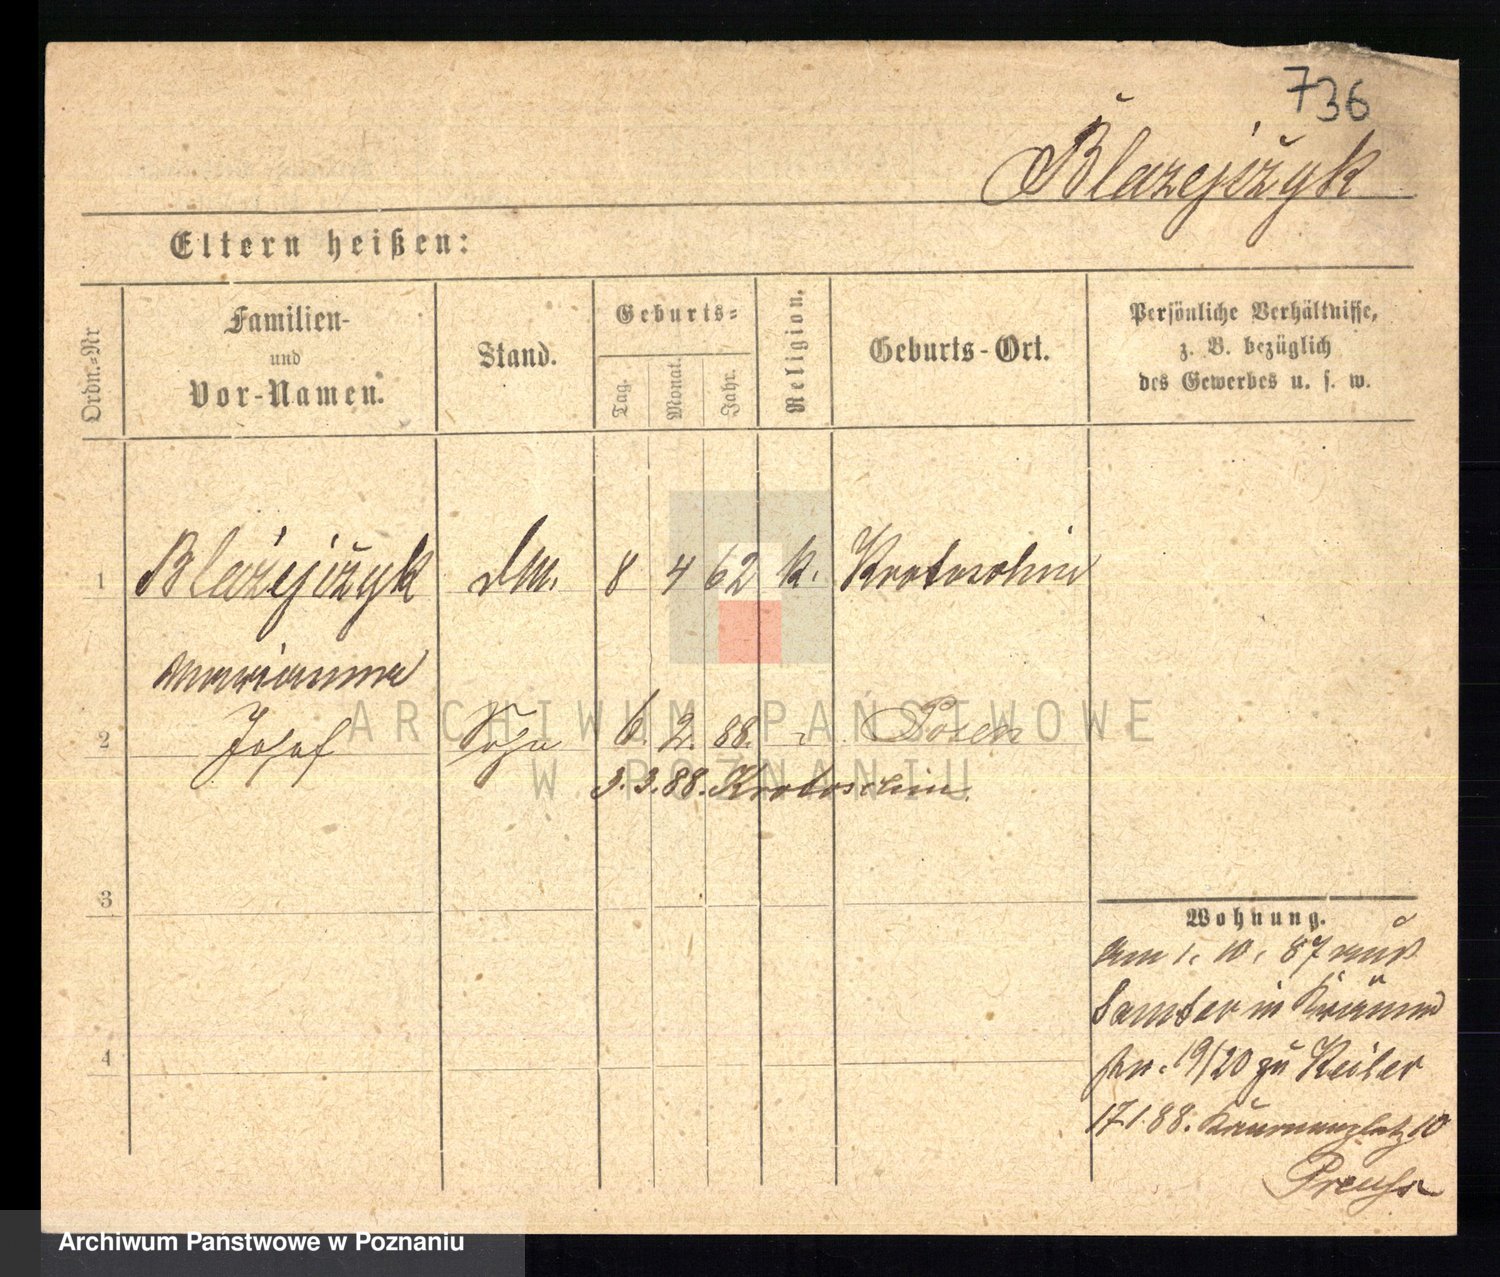 736
Blazejczyk
Eltern heißen:
Ordn.-Nr
Familien-
und
Vor-Namen.
Stand.
Geburts-
Tag.
Monat.
Jahr.
Religion.
Geburts-Ort.
Persönliche Verhältnisse,
z. B. bezüglich
des Gewerbes u. s. w.
1 Błażejczyk dM. 8 4 62 k. Krotoschin
Marianna
2 Josef Sohn 6. 2. 88. Posen
3. 3. 88. Krotoschin
3
4
Wohnung.
Am 1. 10. 87 aus
Samter in
19/20 zu Keiler
17.1.88. 10
Preuß
ARCHIWUM PAŃSTWOWE
W POZNANIU
Archiwum Państwowe w Poznaniu